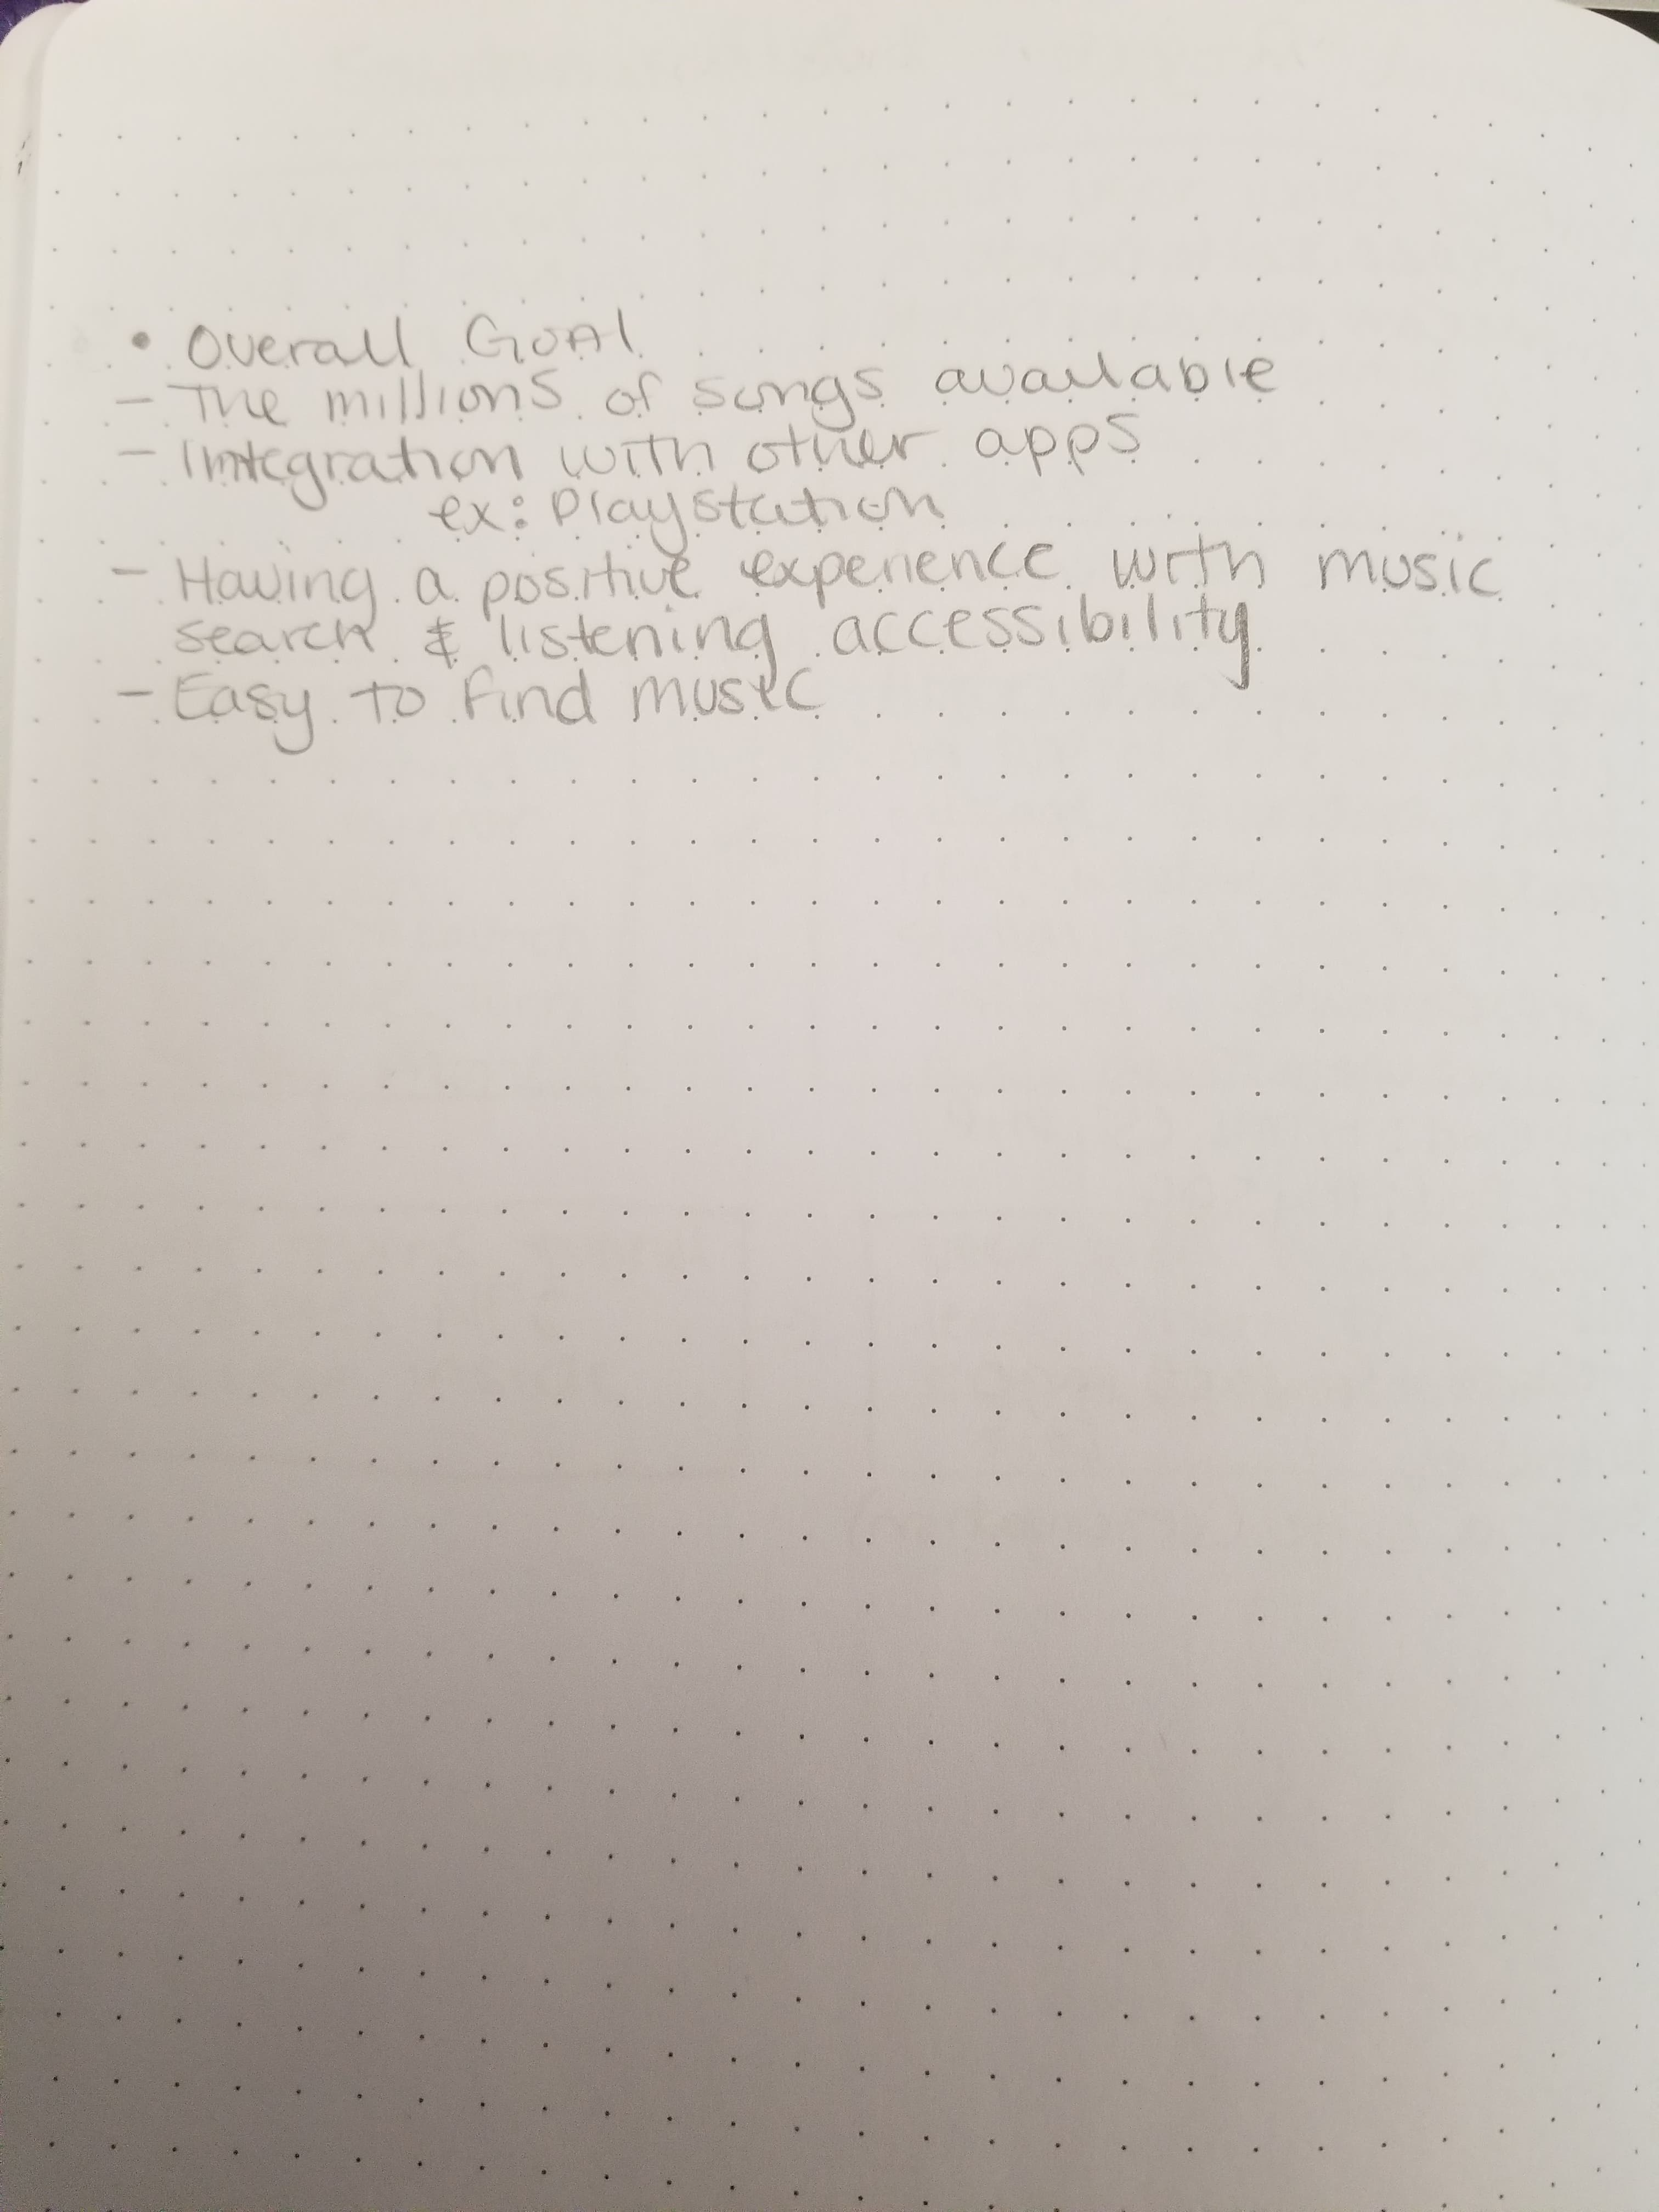 • Overall Goal
- The millions of songs available
- Integration with other apps
ex: Playstation
- Having a positive experience with music
search & listening accessibility
- Easy to find music